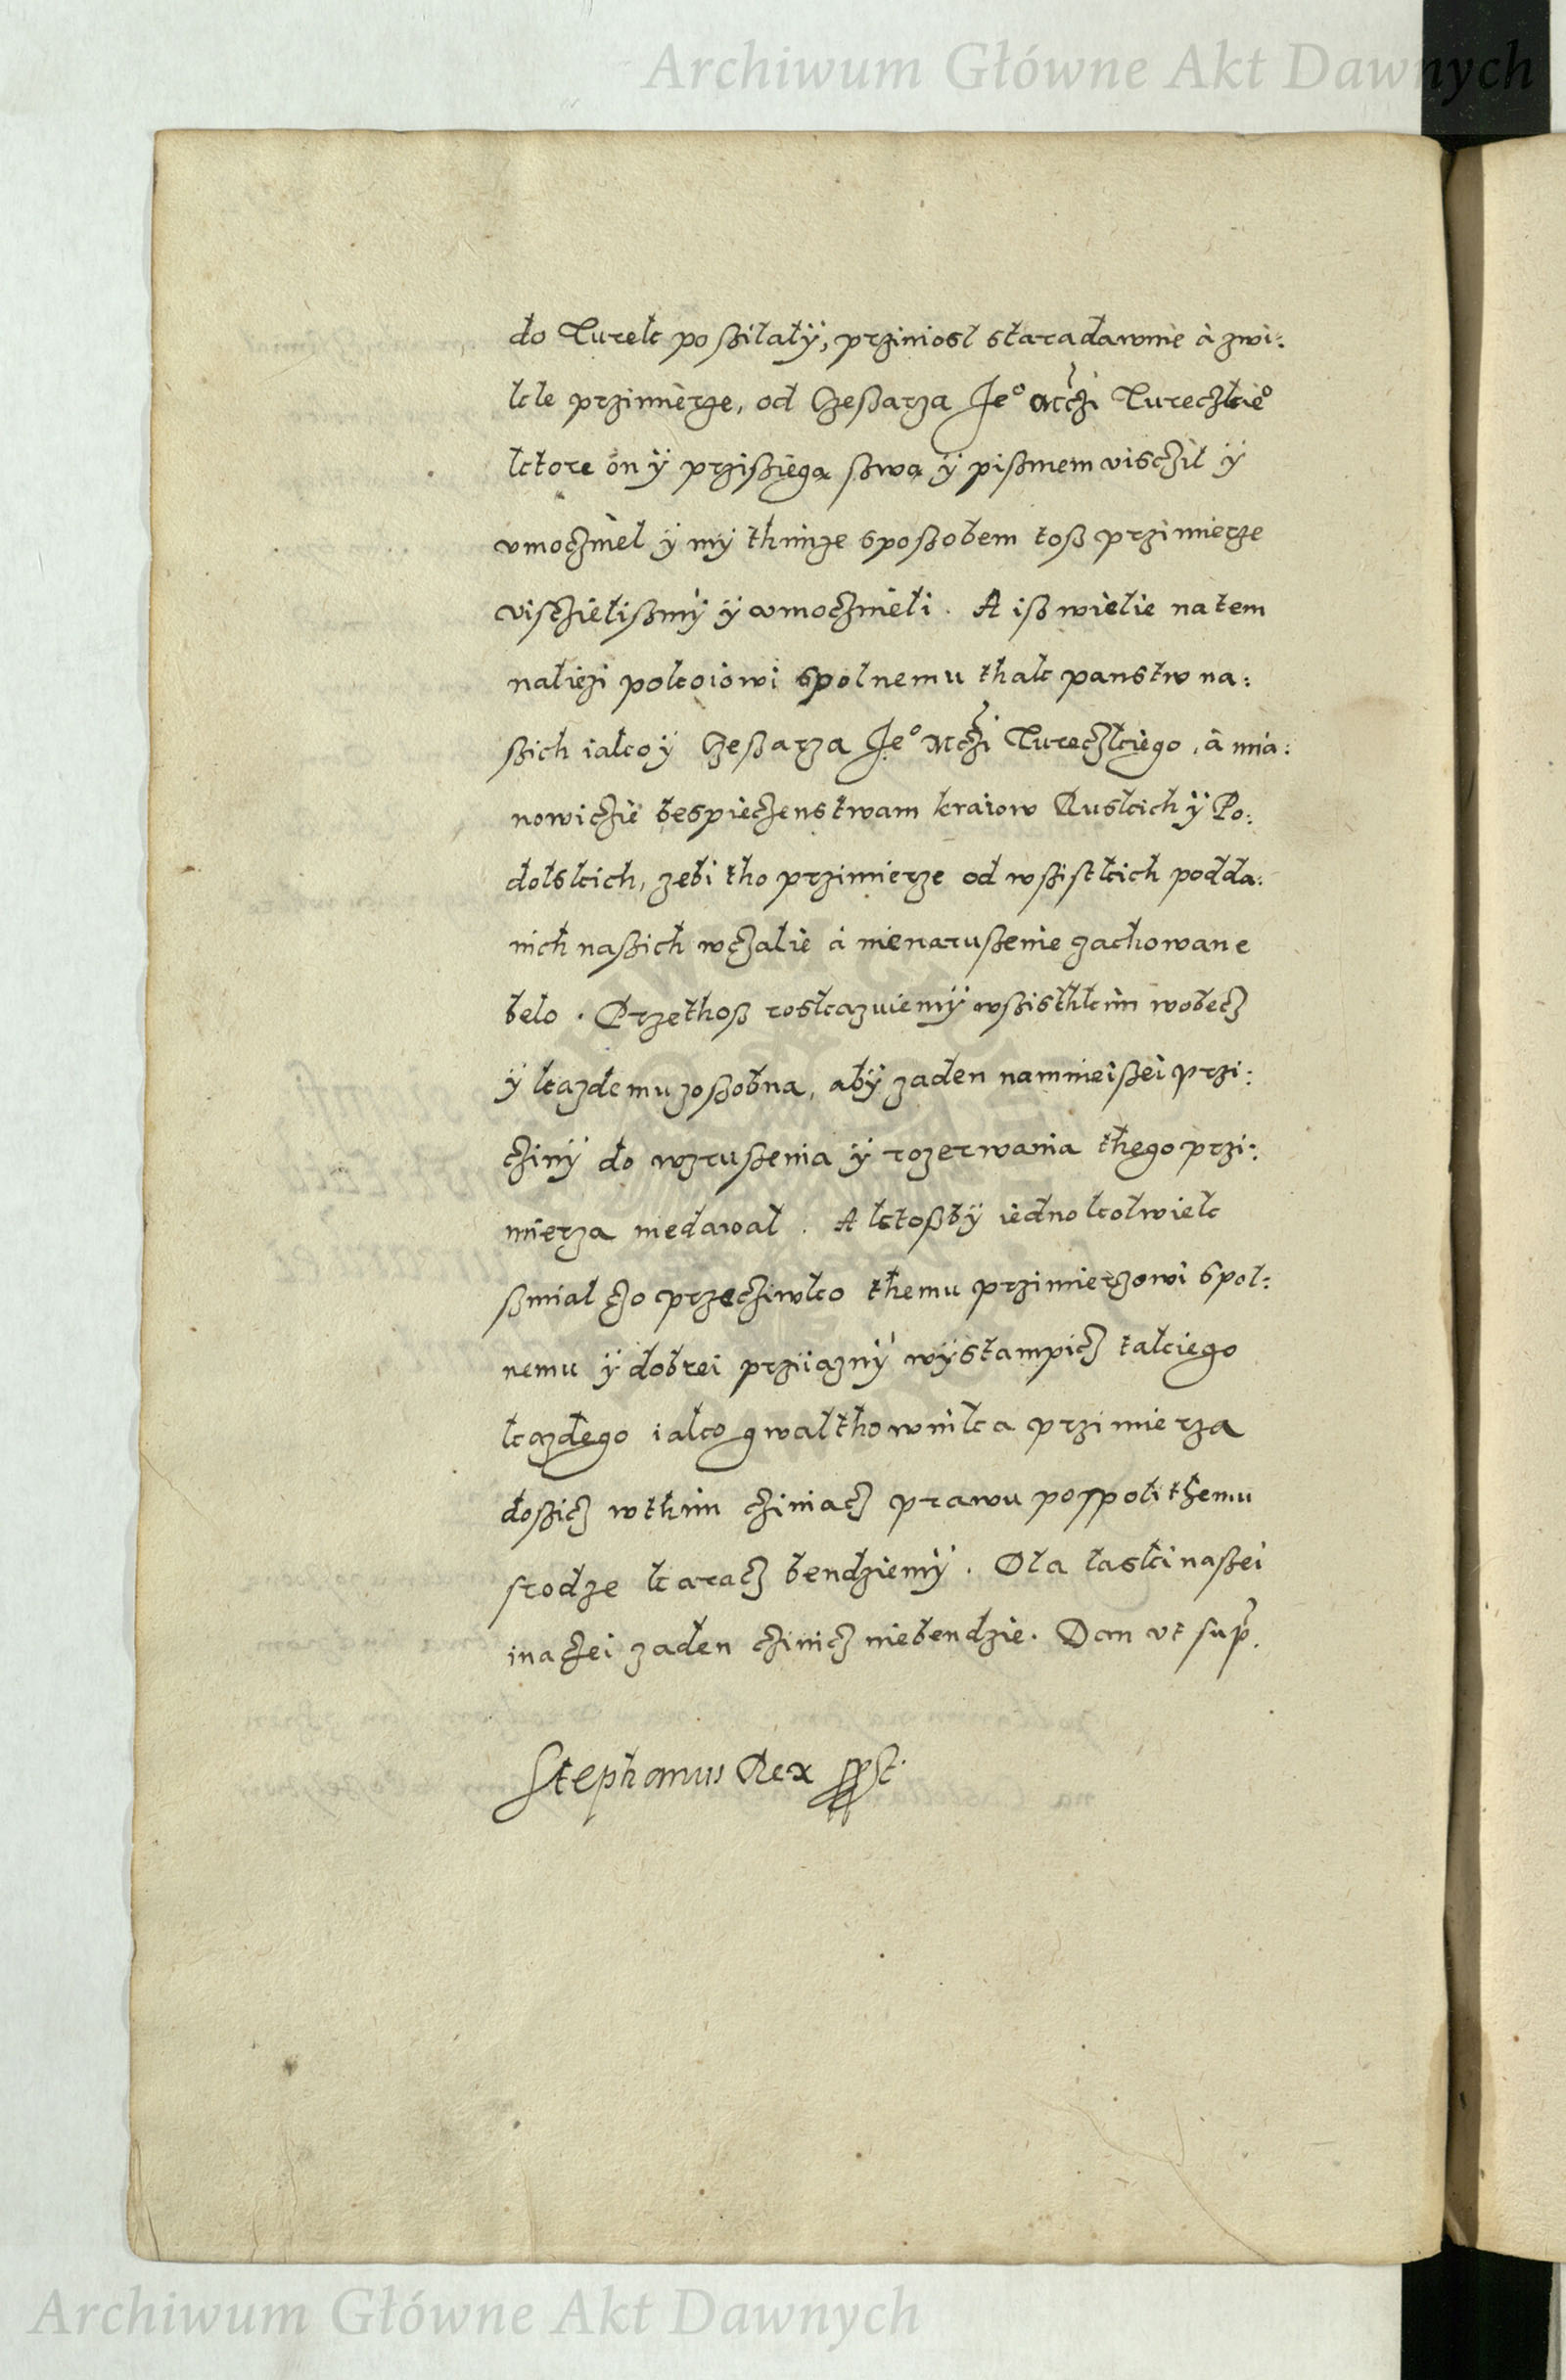 Archiwum Główne Akt Dawnych
do Turek poßilaly, prziniosl staradawnie à zwi:
kle przimierze, od Czeßarza Je° Mczi Tureczkie°
ktore on ÿ przißięgą ßwą ÿ pißmem visczil ÿ
vmoczniel ÿ mÿ thimze sposßobem toß przimierze
visczielißmÿ ÿ vmocznieli. A iß wielie natem
naliezi pokoiowi spolnemu thak panstw na:
ßich iako ÿ Czeßarza Je° Mczi Tureczkiego, à mia:
nowiczie bespieczenstwam kraiow Ruskich ÿ Po:
dolskich, zebi tho przimierze od wßistkich podda:
nich naßich wczalie à nienarußenie zachowane
belo. Przethoß roskazuiemÿ wßisthkim wobecz
ÿ kazdemu zoßobna, abÿ zaden namnieißei przi:
czinÿ do wzrußenia ÿ rozerwania thego przi:
mierza niedawal. A ktoßbÿ iednokolwiek
ßmial czo przecziwko themu przimierzowi spol:
nemu ÿ dobrei prziiaznÿ wÿstampicz takiego
kazdego iako gwalthownika przimierza
doßicz wthim cziniacz prawu pospolithemu
srodze karacz bendziemÿ. Dla laski naßei
inaczei zaden czinicz niebendzie. Dan vt sup.
Stephanus Rex sßt.
Archiwum Główne Akt Dawnych